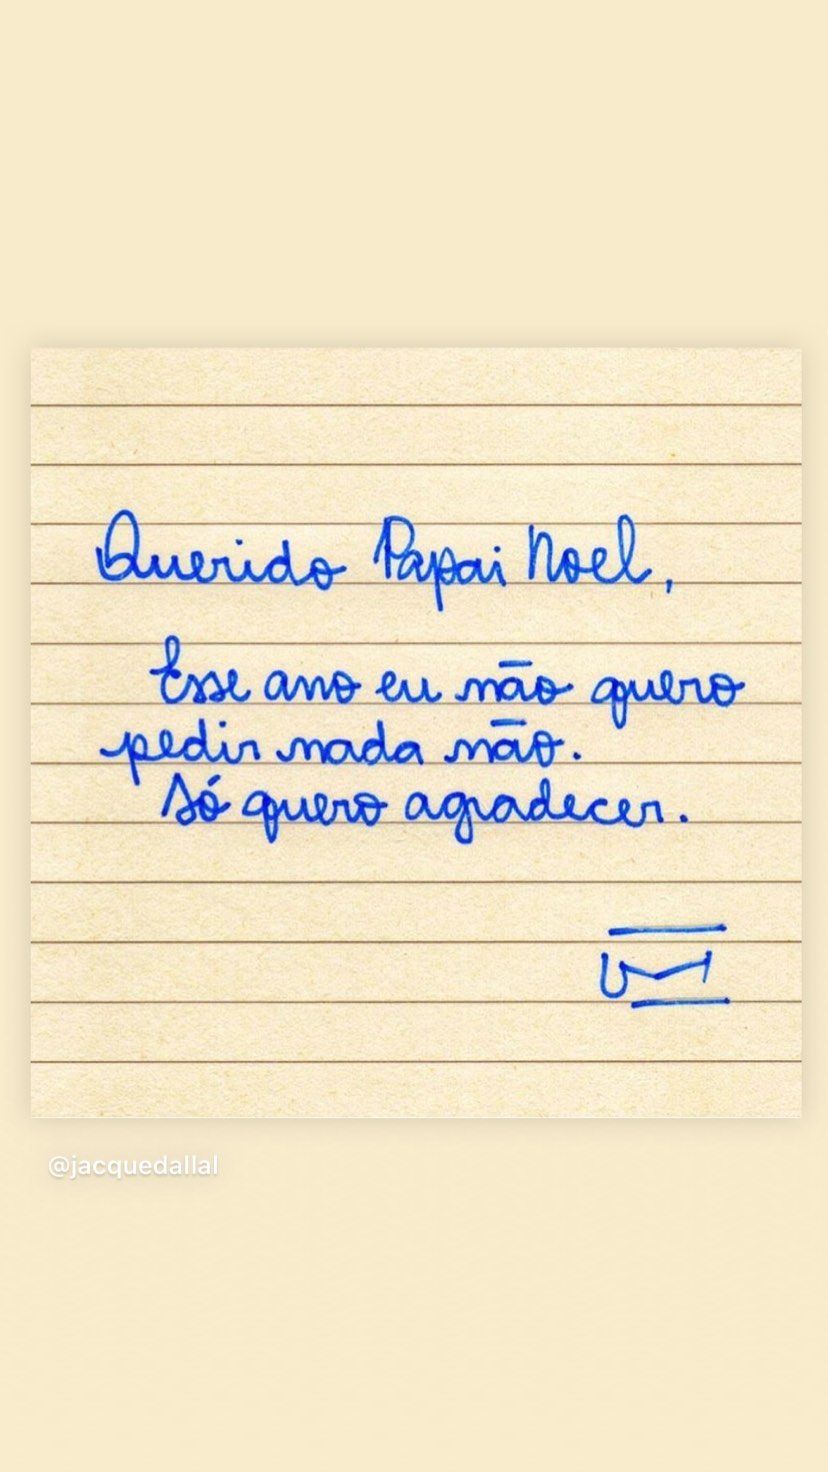 Querido Papai Noel,
Esse ano eu não quero
pedir nada não.
Só quero agradecer.
@jacquedallal